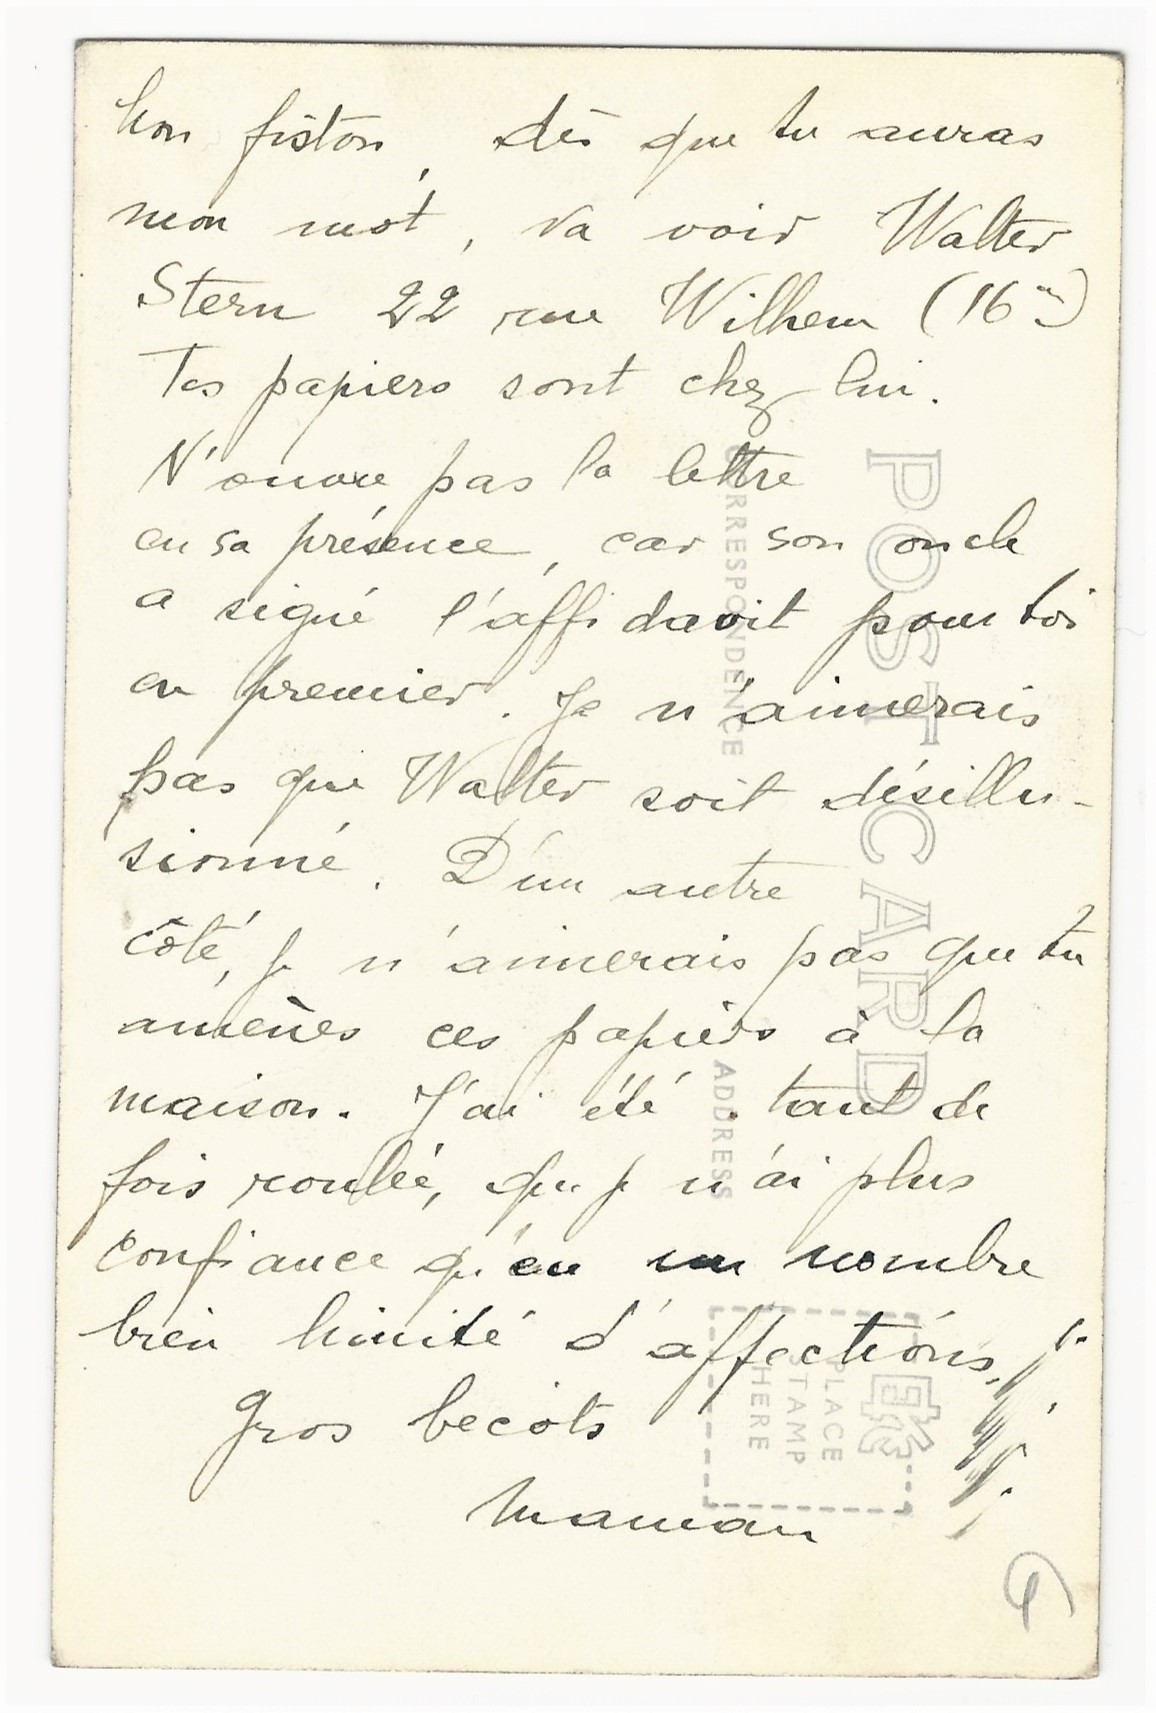 Mon fiston, dès que tu auras
mon mot, va voir Walter
Stern 22 rue Wilhem (16me)
Tes papiers sont chez lui.
N'ouvre pas la lettre
en sa présence, car son oncle
a signé l'affidavit pour toi
en premier. Je n'aimerais
pas que Walter soit désillu-
sionné. D'un autre
côté, je n'aimerais pas que tu
amènes ces papiers à la
maison. J'ai été tant de
fois roulée, que je n'ai plus
confiance qu'en un nombre
bien limité d'affections.
Gros becots
Maman
POST CARD
CORRESPONDENCE
ADDRESS
PLACE
STAMP
HERE